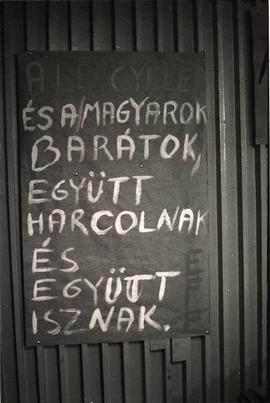 A LENGYELEK
ÉS A MAGYAROK
BARÁTOK,
EGYÜTT
HARCOLNAK
ÉS
EGYÜTT
ISZNAK.